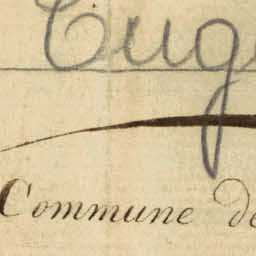 Eug
Commune de